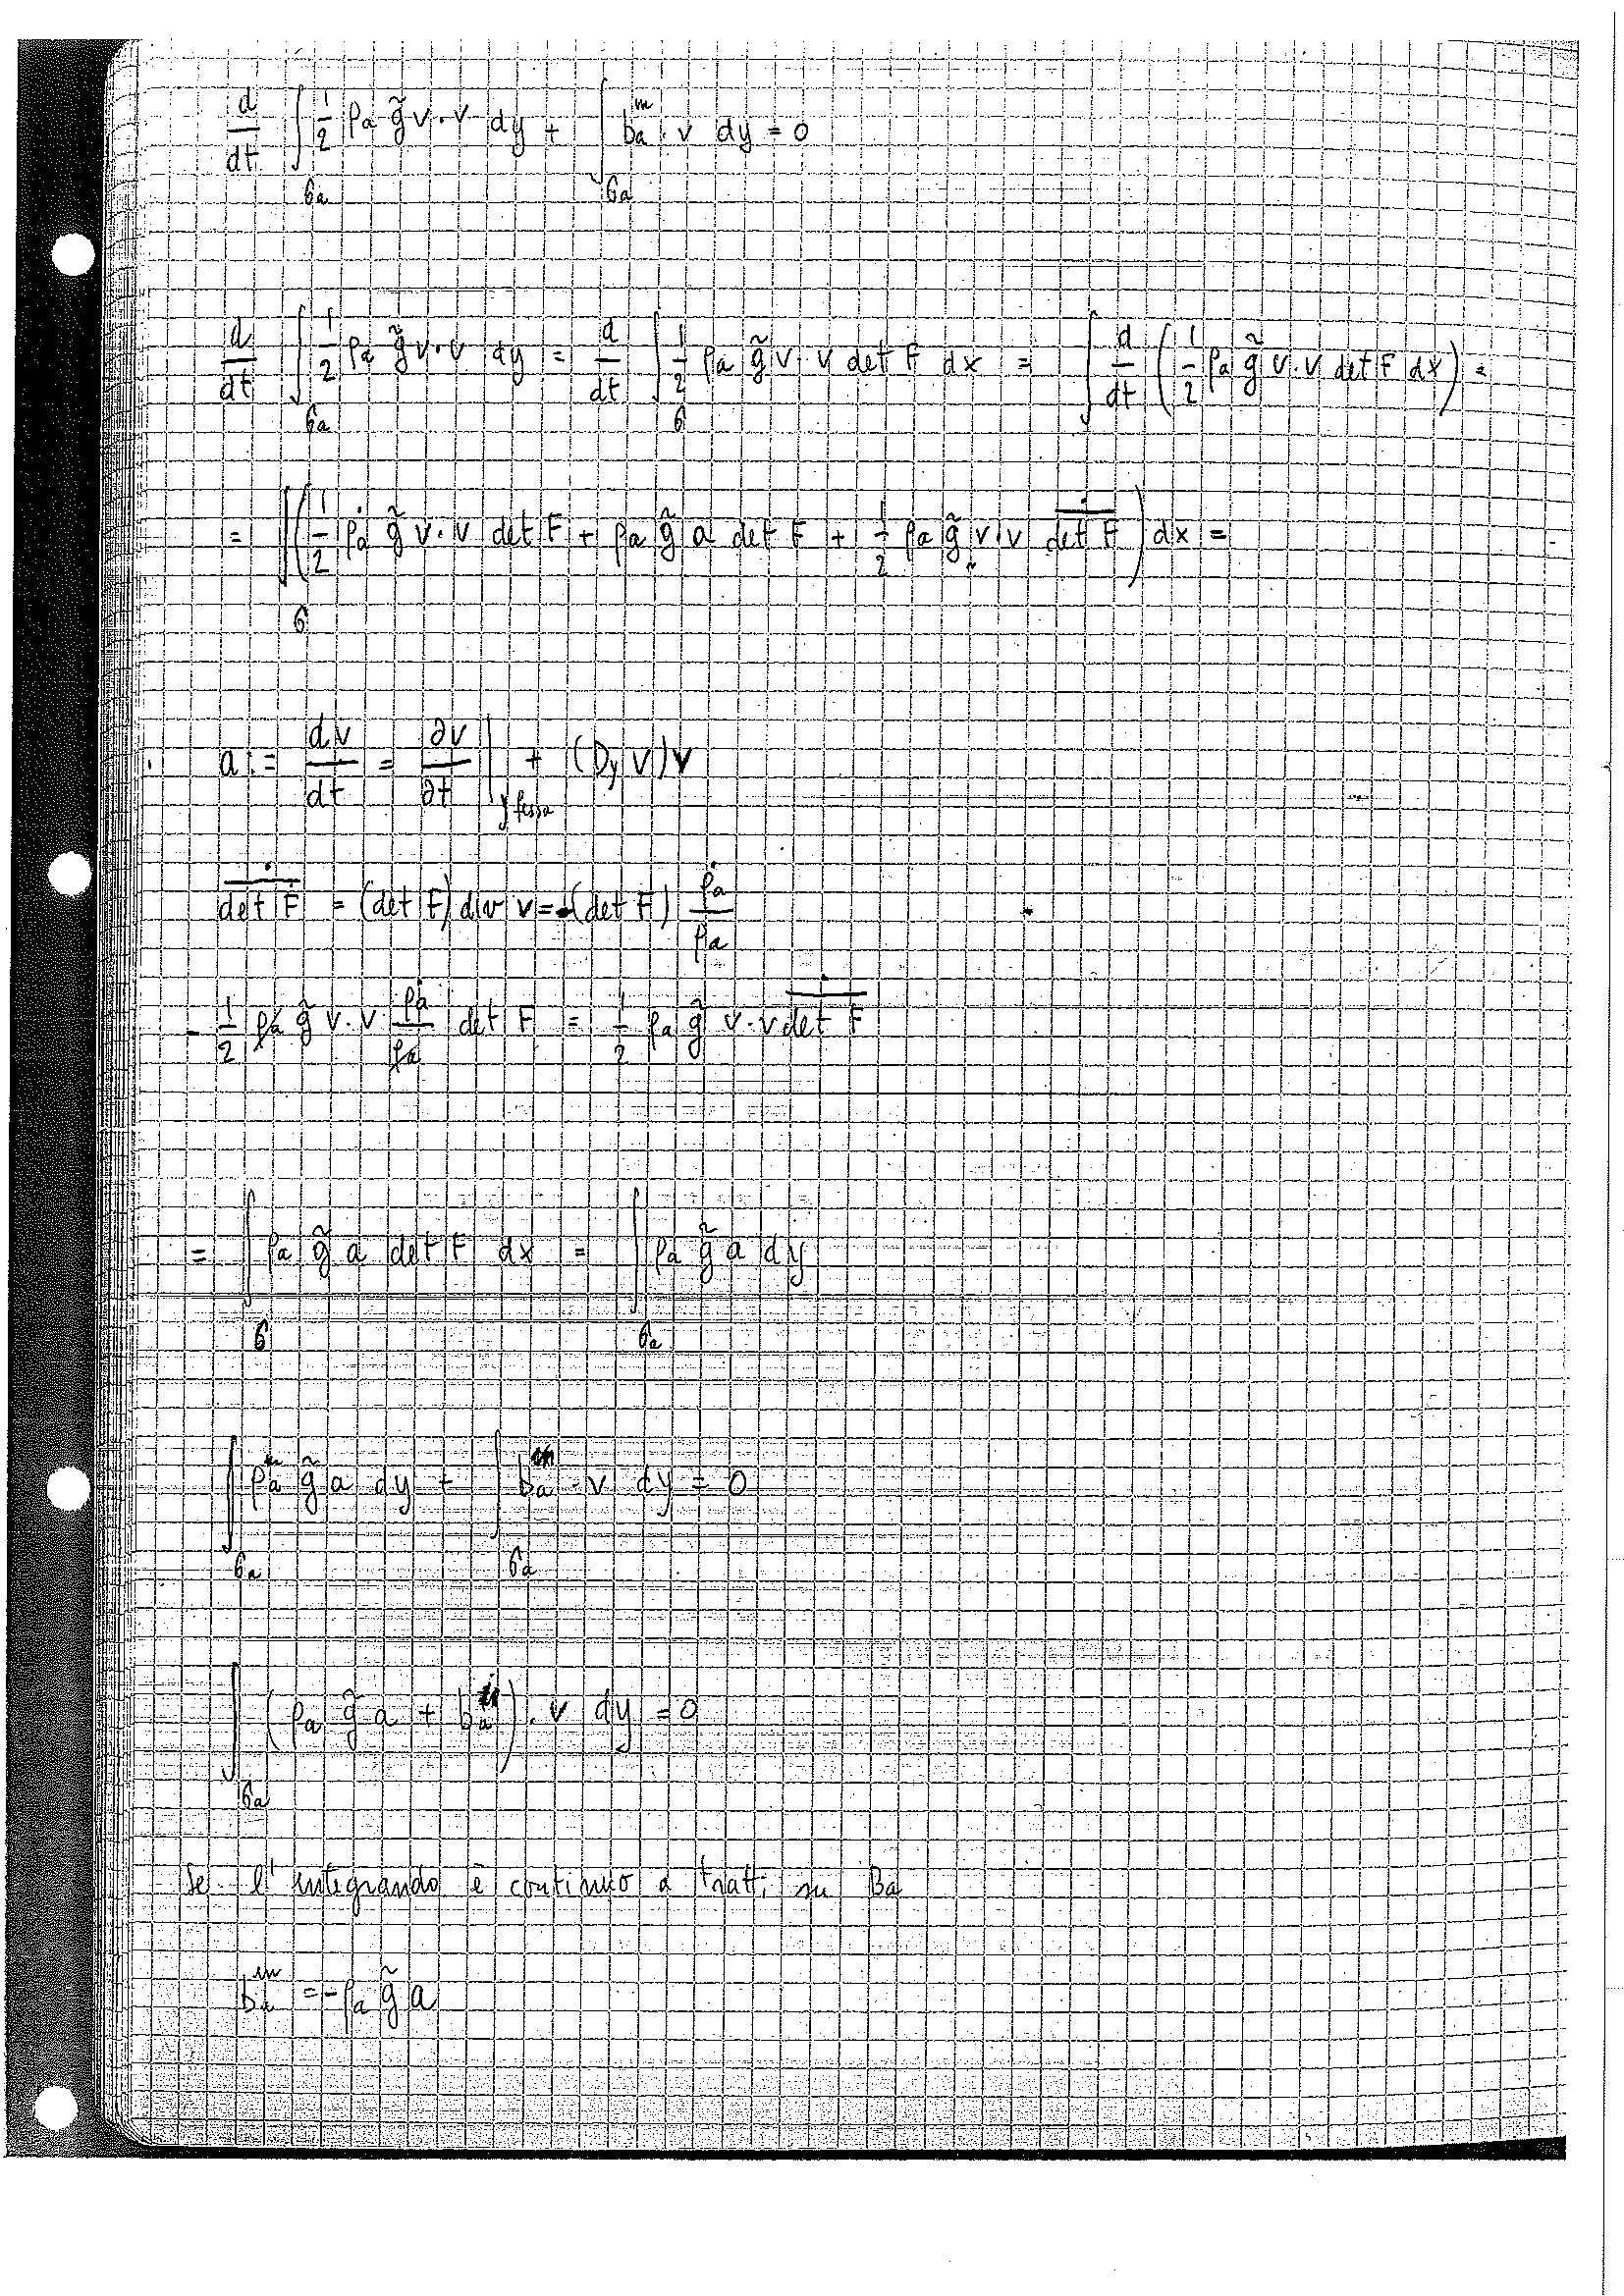 d/dt ∫_{ϐa} 1/2 ρa g̃ v · v dy + ∫_{ϐa} ba^{in} · v dy = 0
d/dt ∫_{ϐa} 1/2 ρa g̃ v · v dy = d/dt ∫_{ϐ} 1/2 ρa g̃ v · v det F dx = ∫ d/dt (1/2 ρa g̃ v · v det F dx) =
= ∫_{ϐ} (1/2 ρ̇a g̃ v · v det F + ρa g̃ a det F + 1/2 ρa g̃ v · v \dot{\overline{det F}}) dx =
a := dv/dt = ∂v/∂t |_{y fissa} + (Dy v) v
\dot{\overline{det F}} = (det F) div v = -(det F) ρ̇a/ρa
- 1/2 ρa g̃ v · v ρ̇a/ρa det F = 1/2 ρa g̃ v · v \dot{\overline{det F}}
= ∫_{ϐ} ρa g̃ a det F dx = ∫_{ϐa} ρa g̃ a dy
∫_{ϐa} ρa g̃ a dy + ∫_{ϐa} ba^{in} · v dy = 0
∫_{ϐa} (ρa g̃ a + ba^{in}) · v dy = 0
Se l'integrando è continuo a tratti su Ba
ba^{in} = - ρa g̃ a